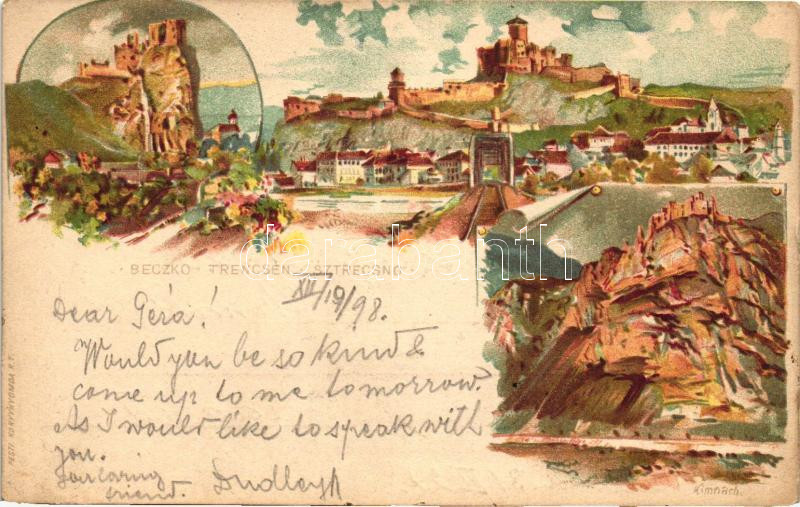 BECZKO · TRENCSÉN · SZTRECSNO ·
XII/19/98.
Dear Géra!
Would you be so kind &
come up to me tomorrow?
As I would like to speak with
you.
Your loving
friend. Dudley
PESTI KÖNYVNYOMDA R.T.
Kimnach.
darabanth